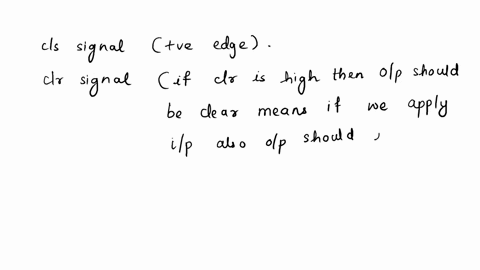 cls signal (+ve edge).
clr signal (if clr is high then o/p should
be clear means if we apply
i/p also o/p should ,